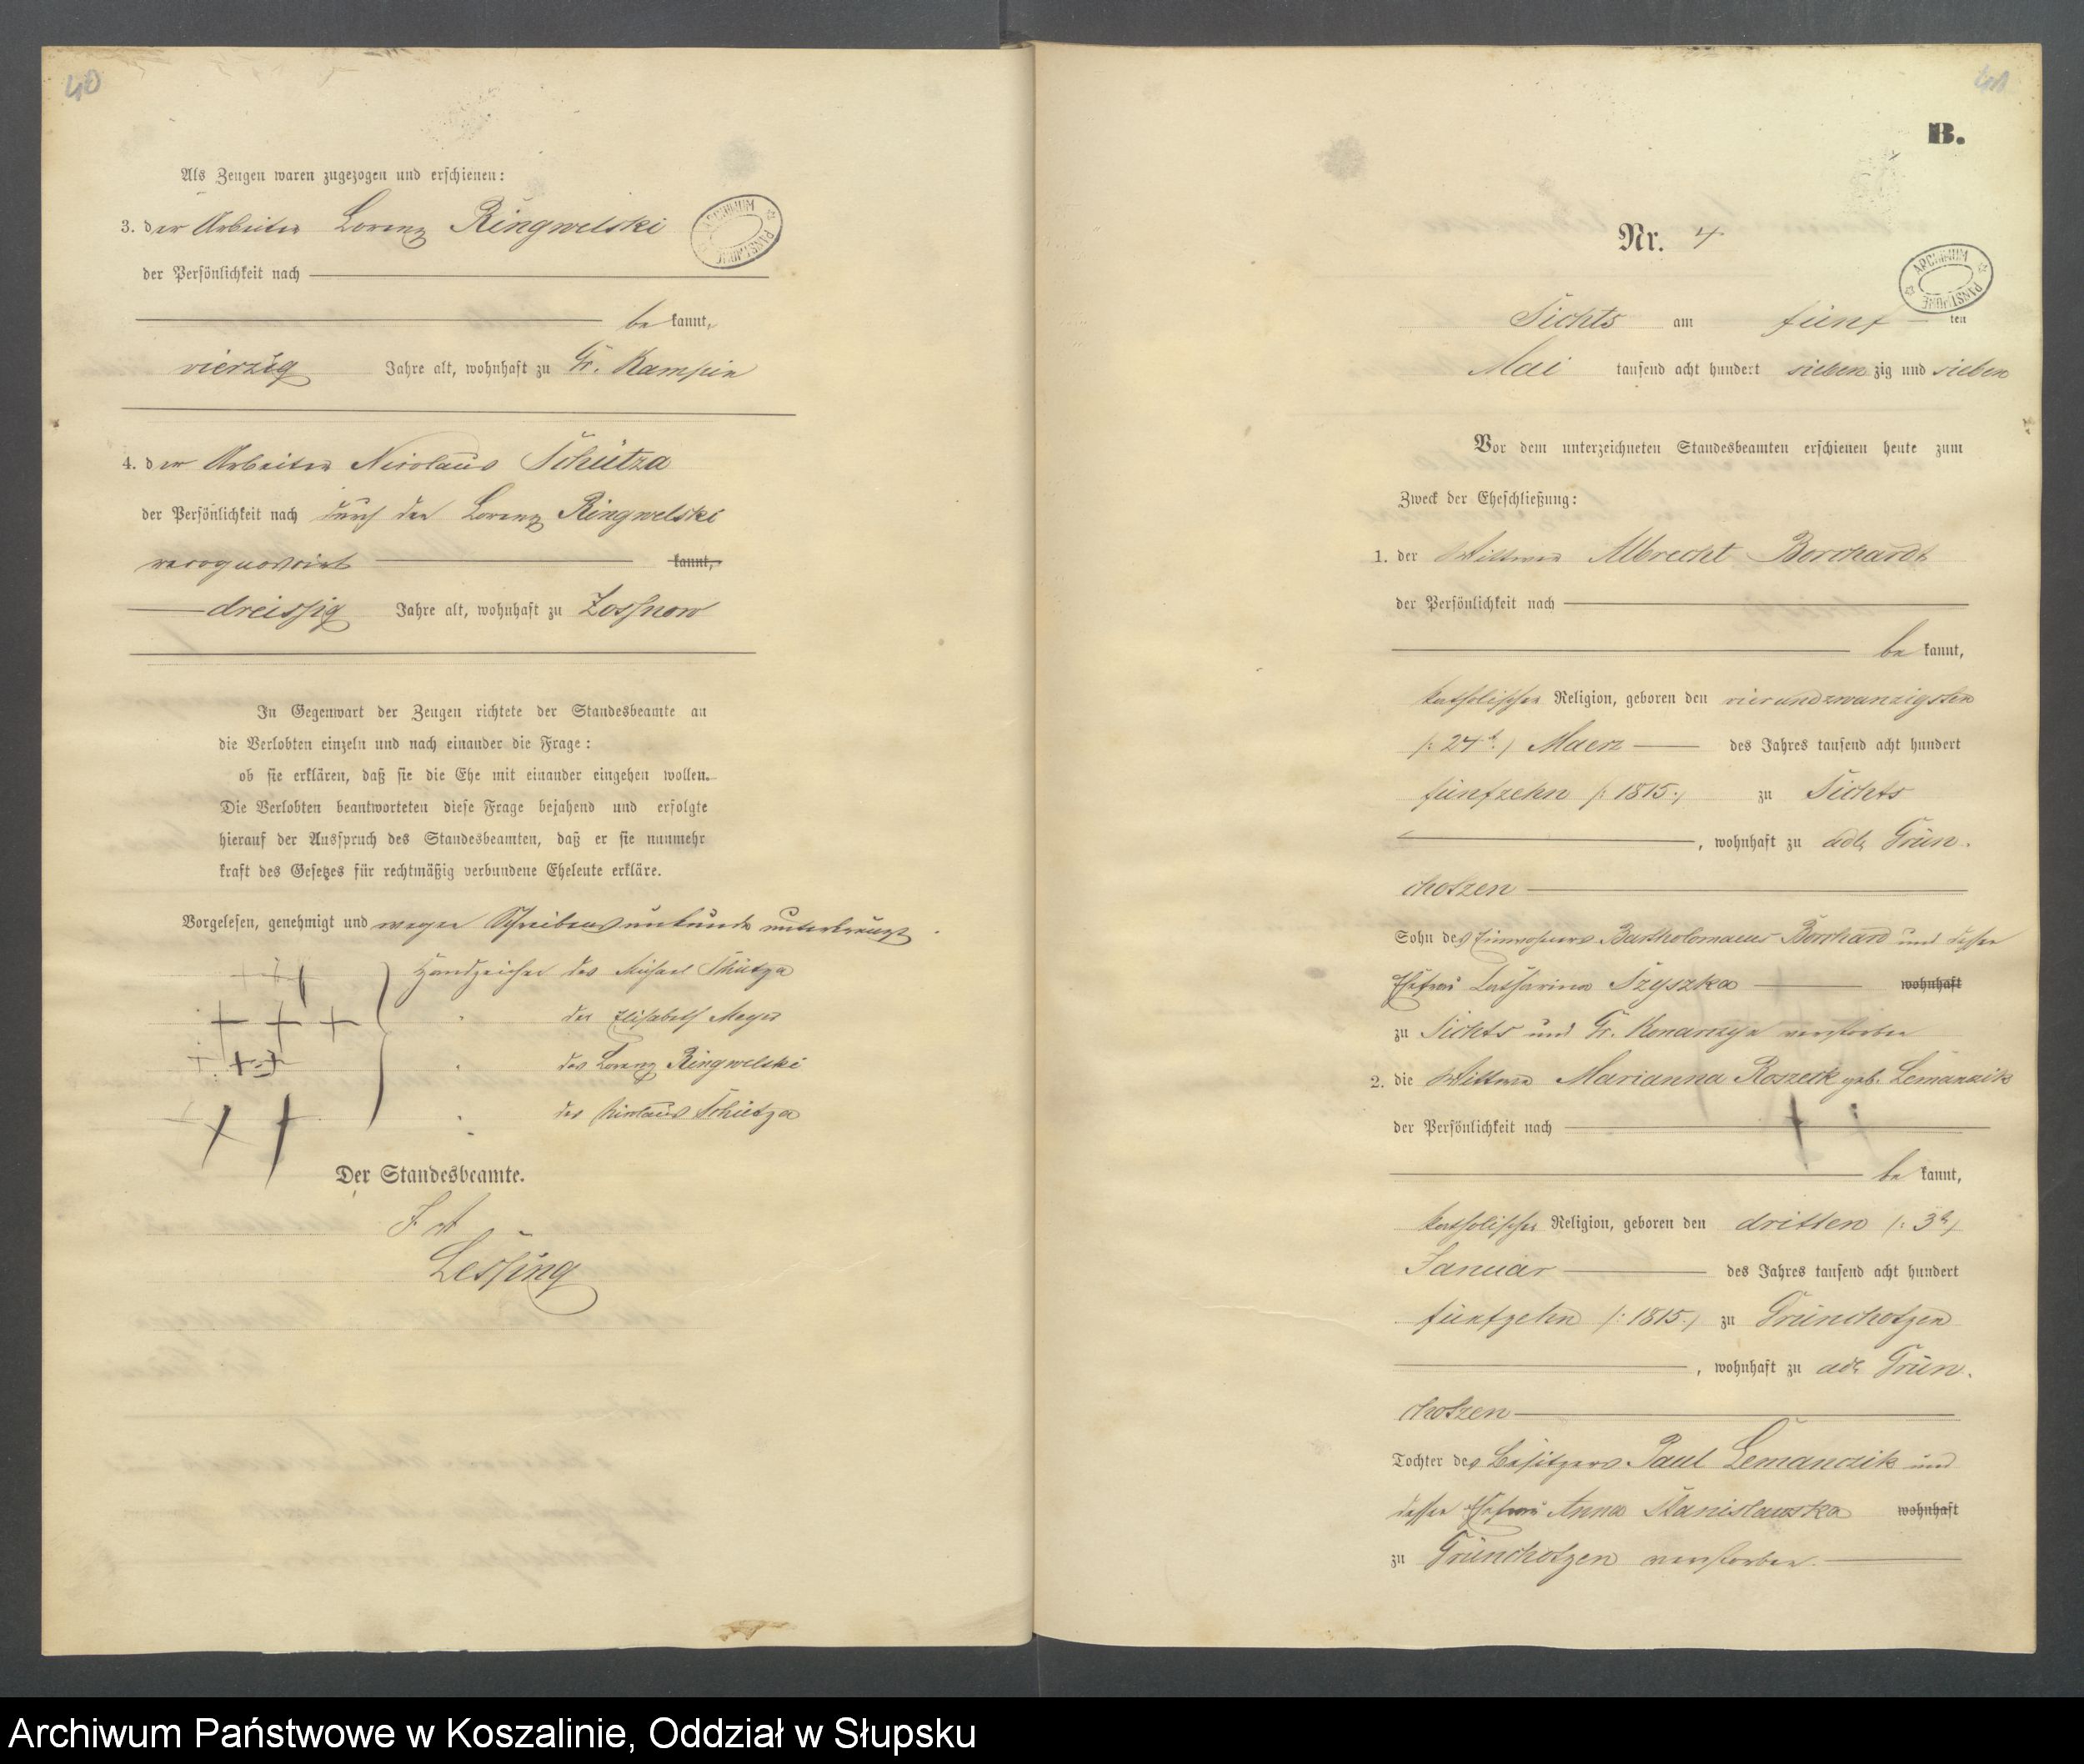 40
Als Zeugen waren zugezogen und erschienen:
3. der Arbeiter Lorenz Ringwelski
der Persönlichkeit nach
be kannt,
vierzig Jahre alt, wohnhaft zu Gr. Kampin
4. der Arbeiter Nicolaus Schütza
der Persönlichkeit nach durch den Lorenz Ringwelski
recognoscirt kannt,
dreissig Jahre alt, wohnhaft zu Zossnow
In Gegenwart der Zeugen richtete der Standesbeamte an
die Verlobten einzeln und nach einander die Frage:
ob sie erklären, daß sie die Ehe mit einander eingehen wollen.
Die Verlobten beantworteten diese Frage bejahend und erfolgte
hierauf der Ausspruch des Standesbeamten, daß er sie nunmehr
kraft des Gesetzes für rechtmäßig verbundene Eheleute erkläre.
Vorgelesen, genehmigt und wegen Schreibensunkunde unterkreuzt
Handzeichen des Michael Schütza
" der Elisabeth Meyer
" des Lorenz Ringwelski
" des Nicolaus Schütza
Der Standesbeamte.
Lessing
ARCHIWUM PAŃSTWOWE
41
B.
Nr. 4
ARCHIWUM PAŃSTWOWE
Sichts am fünf ten
Mai tausend acht hundert sieben zig und sieben
Vor dem unterzeichneten Standesbeamten erschienen heute zum
Zweck der Eheschließung:
1. der Wittwer Albrecht Borchardt
der Persönlichkeit nach
be kannt,
katholischer Religion, geboren den vierundzwanzigsten
/: 24t :/ Maerz des Jahres tausend acht hundert
fünfzehn /: 1815 :/ zu Sichts
, wohnhaft zu adl. Grün-
chotzen
Sohn des Einwohners Bartholomaeus Borchard und dessen
Ehefrau Catharina Szyszka wohnhaft
zu Sichts und Gr. Konarczyn verstorben
2. die Wittwe Marianna Roszeck geb. Lemanczik
der Persönlichkeit nach
be kannt,
katholischer Religion, geboren den dritten /: 3t :/
Januar des Jahres tausend acht hundert
fünfzehn /: 1815 :/ zu Grünchotzen
, wohnhaft zu adl. Grün-
chotzen
Tochter des Besitzers Paul Lemanczik und
dessen Ehefrau Anna Stanislawska wohnhaft
zu Grünchotzen verstorben.
Archiwum Państwowe w Koszalinie, Oddział w Słupsku